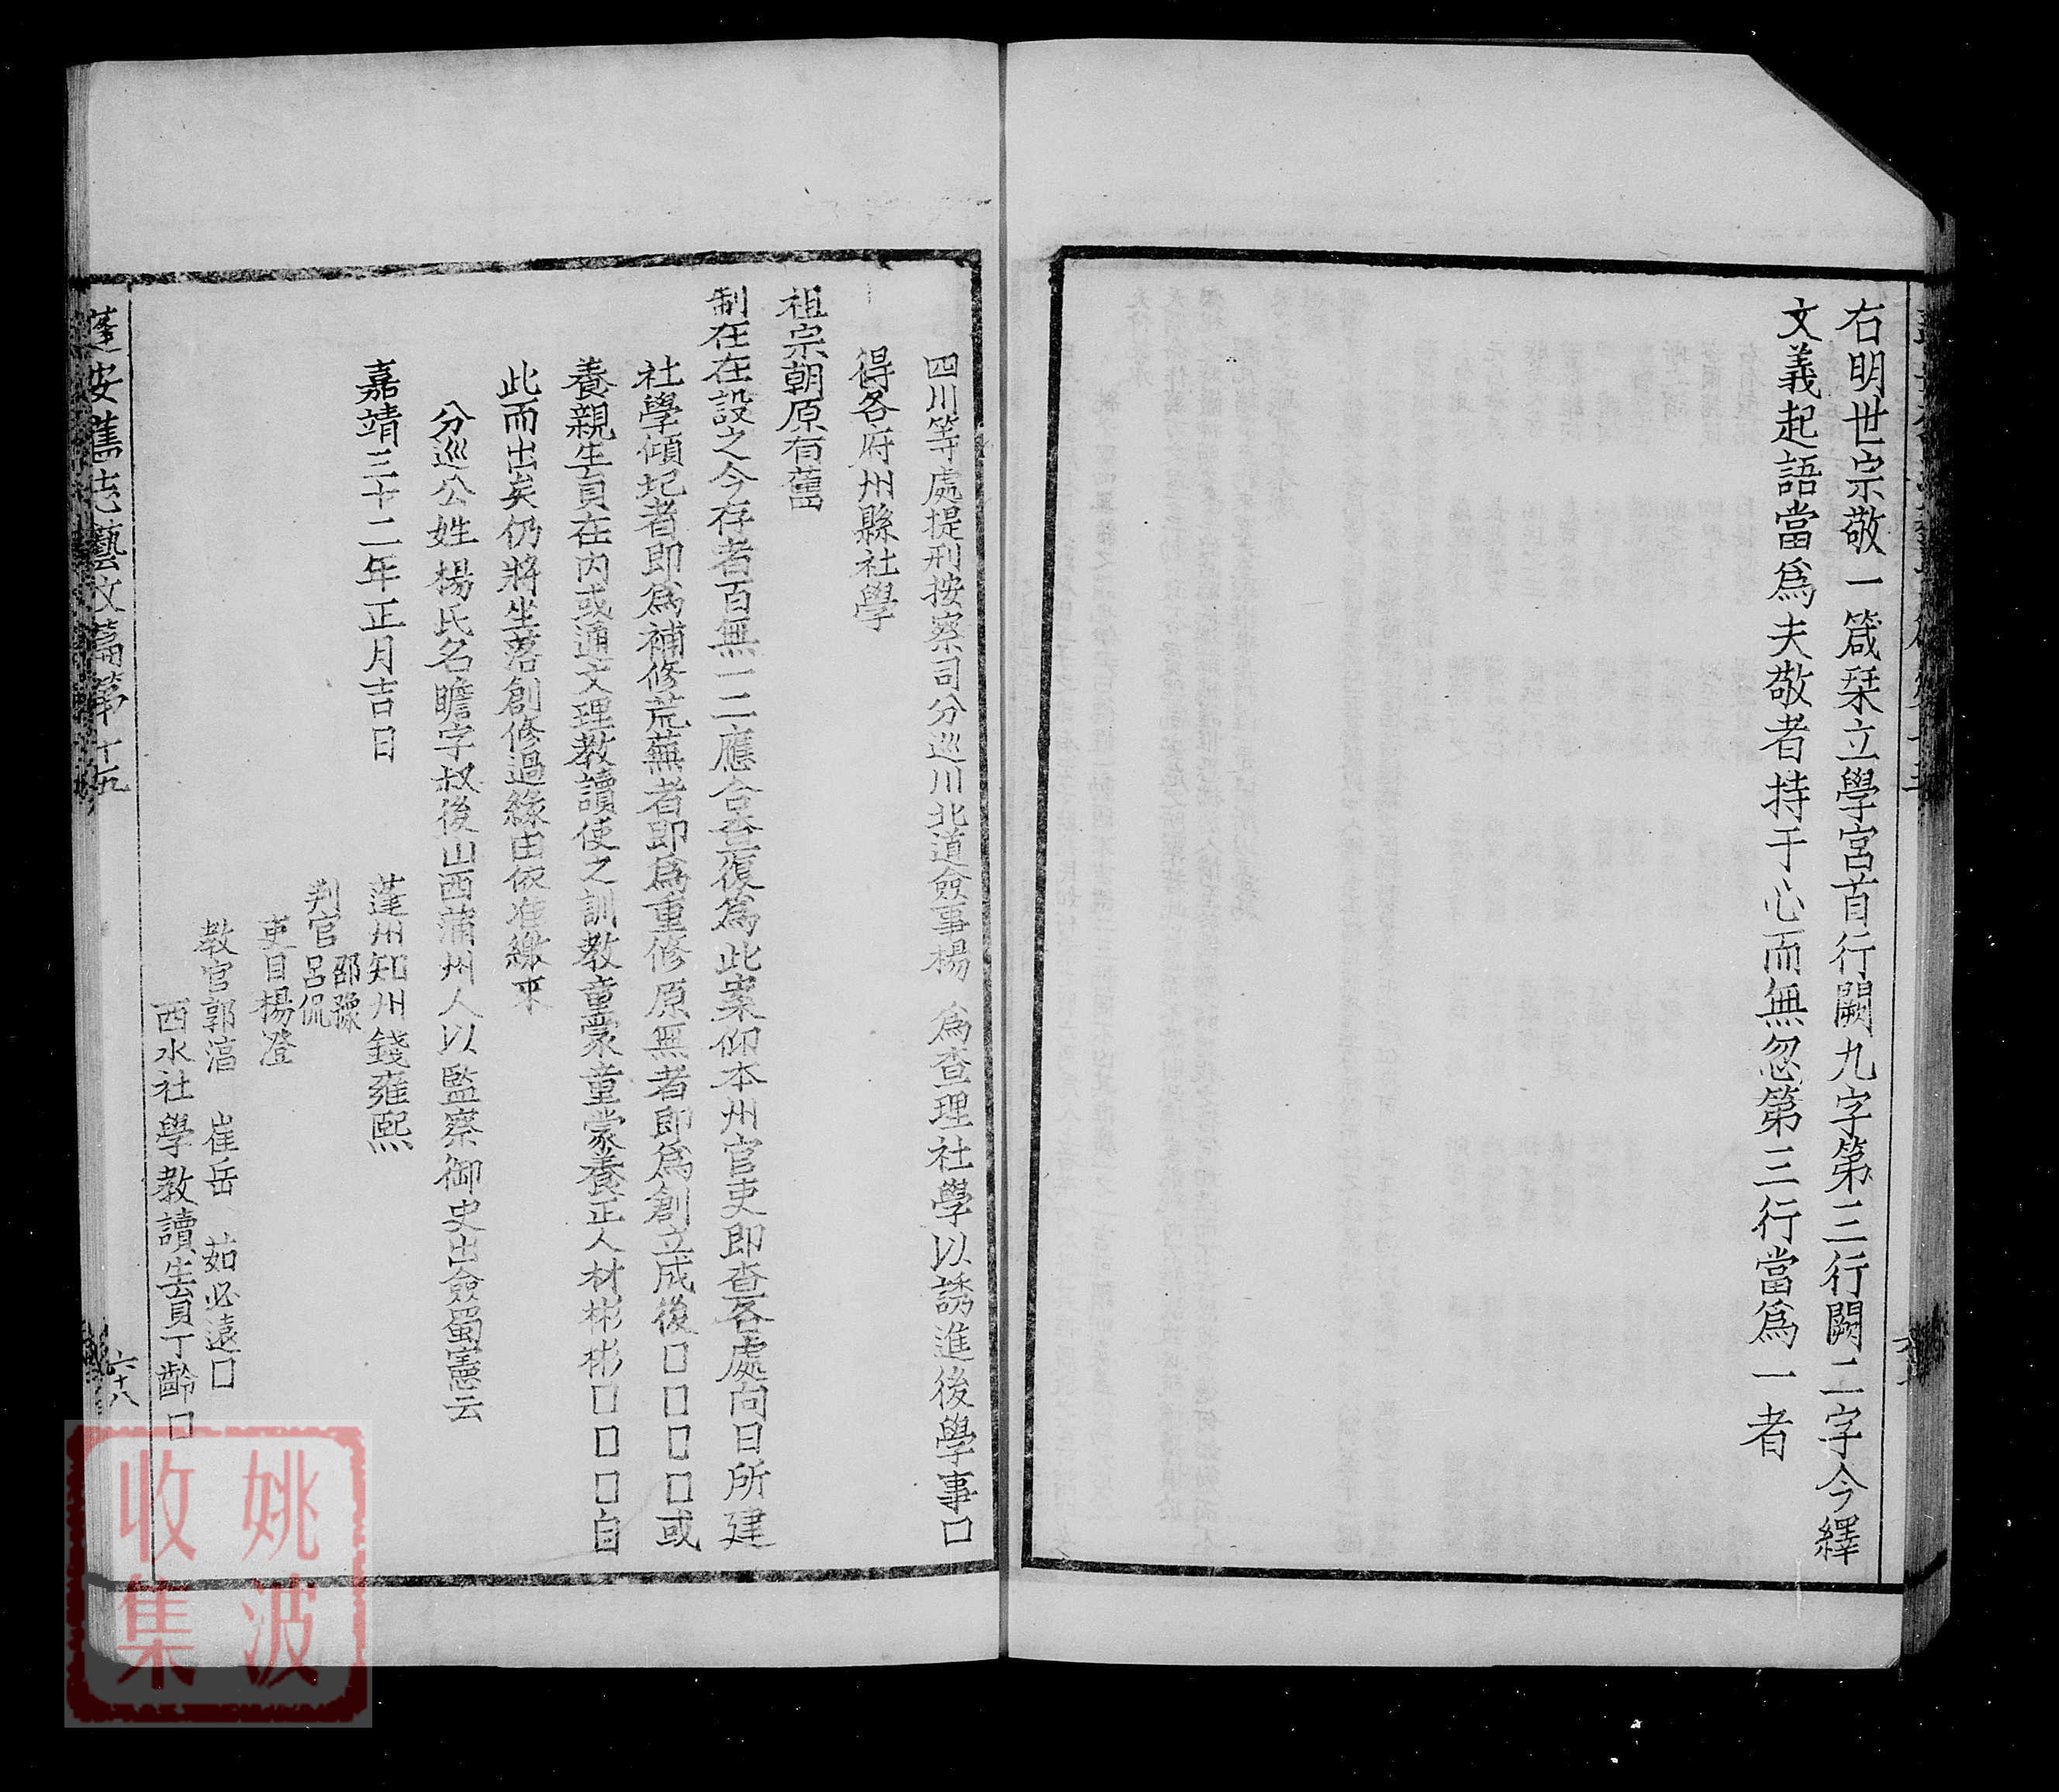 右明世宗敬一箴栞立學宮首行闕九字第三行闕二字今繹
文義起語當爲夫敬者持于心而無忽第三行當爲一者
四川等處提刑按察司分巡川北道僉事楊 爲查理社學以誘進後學事□
得各府州縣社學
祖宗朝原有舊
制在在設之今存者百無一二應合查復爲此案仰本州官吏即查各處向日所建
社學傾圮者即爲補修荒蕪者即爲重修原無者即爲創立成後□□□□或
養親生員在內或通文理教讀使之訓教童蒙童蒙養正人材彬彬□□□自
此而出矣仍將坐落創修過緣由依准繳來
分巡公姓楊氏名瞻字叔後山西蒲州人以監察御史出僉蜀憲云
嘉靖三十二年正月吉日
蓬州知州錢雍熙
判官 邵豫
呂侃
吏目楊澄
教官郭 崔岳 茹必遠□
西水社學教讀生員丁齡□
蓬安舊志藝文篇第十五
六十八
姚波
收集